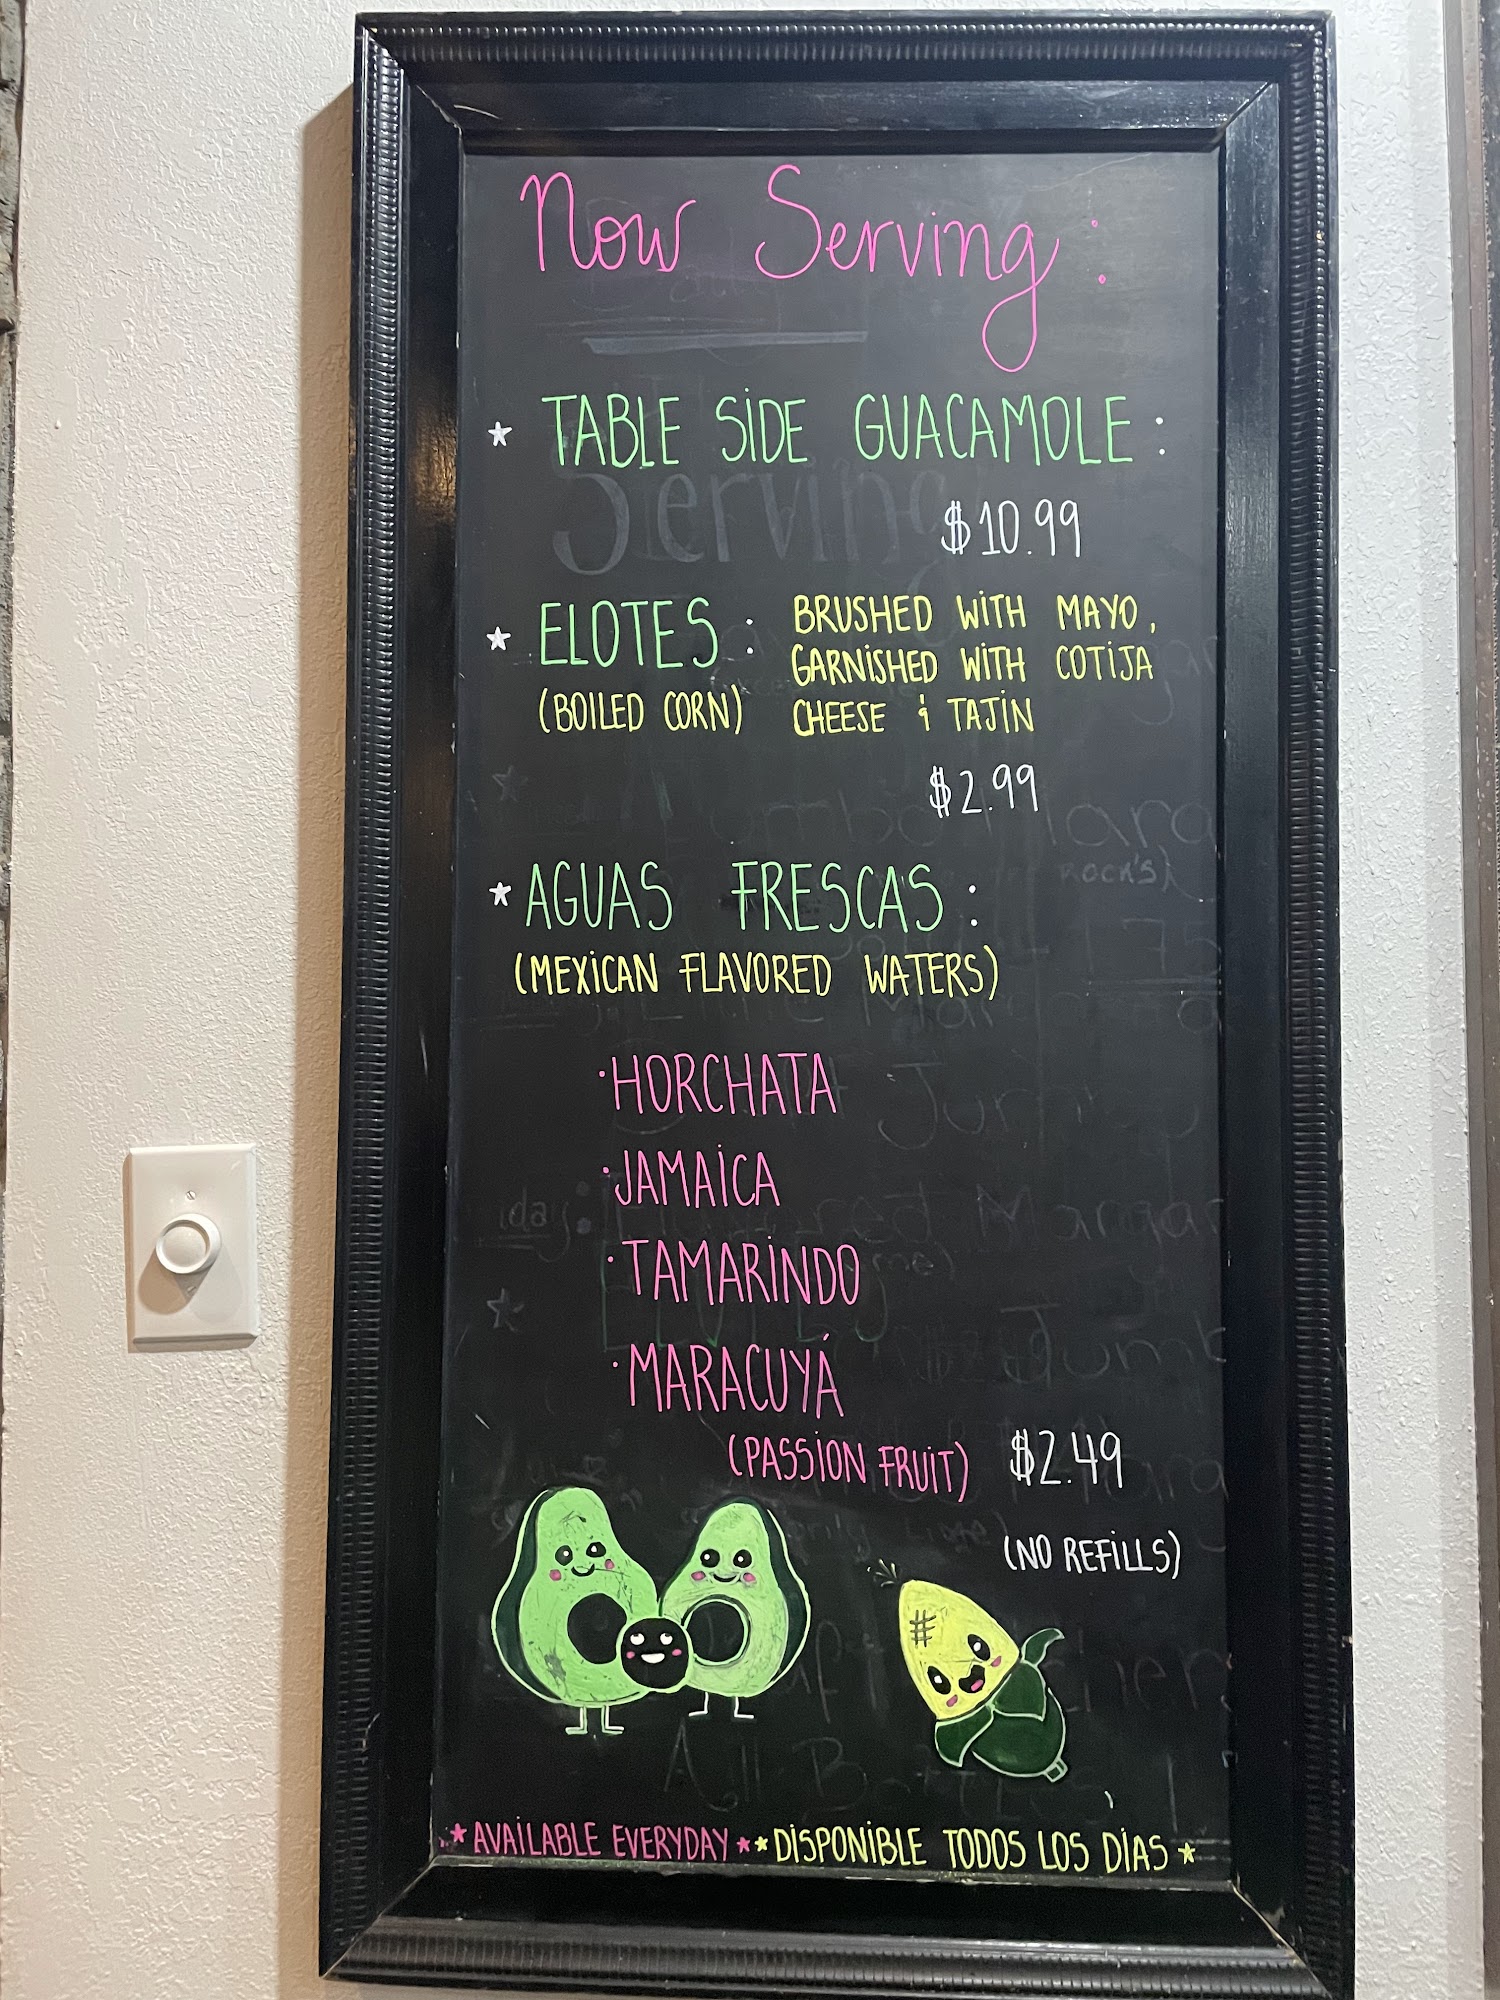 Now Serving:
* TABLE SIDE GUACAMOLE:
$10.99
* ELOTES:
(BOILED CORN)
BRUSHED WITH MAYO,
GARNISHED WITH COTIJA
CHEESE & TAJIN
$2.99
* AGUAS FRESCAS:
(MEXICAN FLAVORED WATERS)
·HORCHATA
·JAMAICA
·TAMARINDO
·MARACUYÁ
(PASSION FRUIT) $2.49
(NO REFILLS)
*AVAILABLE EVERYDAY* *DISPONIBLE TODOS LOS DÍAS*
Serving
ROCK'S)